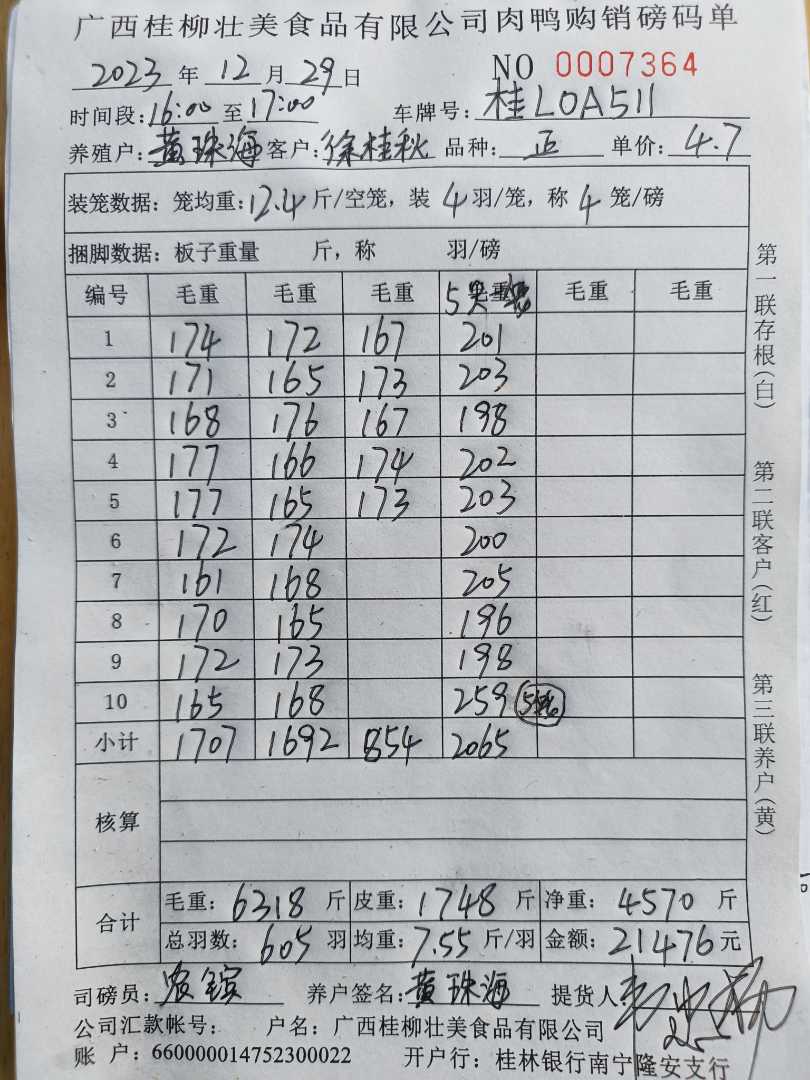 广西桂柳壮美食品有限公司肉鸭购销磅码单
2023 年 12 月 29 日 NO 0007364
时间段: 16:00 至 17:00 车牌号: 桂L0A511
养殖户: 黄珠海 客户: 徐桂秋 品种: 正 单价: 4.7
装笼数据: 笼均重: 12.4 斤/空笼, 装 4 羽/笼, 称 4 笼/磅
捆脚数据: 板子重量 斤, 称 羽/磅
编号 毛重 毛重 毛重 5 毛重 毛重 毛重
1 174 172 167 201
2 171 165 173 203
3 168 176 167 198
4 177 166 174 202
5 177 165 173 203
6 172 174 200
7 161 168 205
8 170 165 196
9 172 173 198
10 165 168 259
小计 1707 1692 854 2065
核算
合计
毛重: 6318 斤 皮重: 1748 斤 净重: 4570 斤
总羽数: 605 羽 均重: 7.55 斤/羽 金额: 21476 元
司磅员: 养户签名: 黄珠海 提货人
公司汇款帐号: 户名: 广西桂柳壮美食品有限公司
账 户: 660000014752300022 开户行: 桂林银行南宁隆安支行
第一联存根(白)
第二联客户(红)
第三联养户(黄)